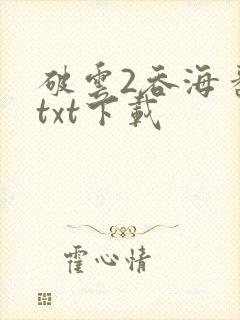 破雲2吞海
txt下載
霍心情